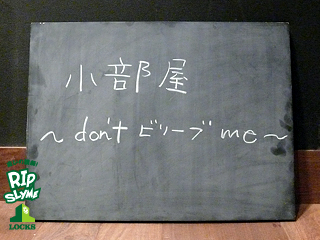 小部屋
～don't ビリーブ me～
RIP
SLYME
LOCKS